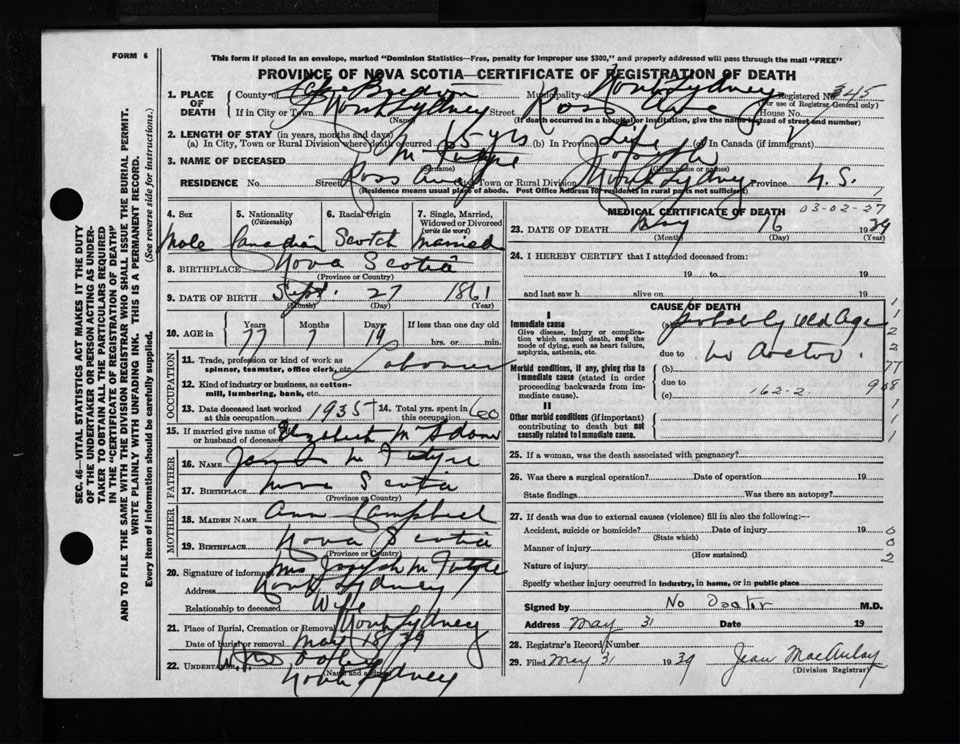 FORM 6
This form if placed in an envelope, marked "Dominion Statistics—Free, penalty for improper use $300," and properly addressed will pass through the mail "FREE"
PROVINCE OF NOVA SCOTIA—CERTIFICATE OF REGISTRATION OF DEATH
1. PLACE OF DEATH County of Cape Breton Municipality North Sydney Registered No. 345
(For use of Registrar General only)
If in City or Town North Sydney Street Ross Ave House No.
(Name) (If death occurred in a hospital or institution, give the name instead of street and number)
2. LENGTH OF STAY (in years, months and days)
(a) In City, Town or Rural Division where death occurred 65 yrs (b) In Province Life (c) In Canada (if immigrant)
3. NAME OF DECEASED McIntyre Joseph
(Surname) (Given name or names)
RESIDENCE No. Street Ross Ave City, Town or Rural Division North Sydney Province N.S.
(Residence means usual place of abode. Post Office Address for residents in rural parts not sufficient)
4. Sex 5. Nationality (Citizenship) 6. Racial Origin 7. Single, Married, Widowed or Divorced (write the word)
Male Canadian Scotch Married
8. BIRTHPLACE Nova Scotia
(Province or Country)
9. DATE OF BIRTH Sept. 27 1861
(Month) (Day) (Year)
10. AGE in Years Months Days If less than one day old
77 7 19 hrs. or min.
OCCUPATION
11. Trade, profession or kind of work as spinner, teamster, office clerk, etc. Labourer
12. Kind of industry or business, as cotton-mill, lumbering, bank, etc.
13. Date deceased last worked at this occupation 1935 14. Total yrs. spent in this occupation 60
15. If married give name of wife or husband of deceased Elizabeth McAdam
FATHER
16. NAME James McIntyre
17. BIRTHPLACE Nova Scotia
(Province or Country)
MOTHER
18. MAIDEN NAME Ann Campbell
19. BIRTHPLACE Nova Scotia
(Province or Country)
20. Signature of informant Mrs Joseph McIntyre
Address North Sydney
Relationship to deceased Wife
21. Place of Burial, Cremation or Removal North Sydney
Date of burial or removal May 18/39
22. UNDERTAKER
(Name and address)
North Sydney
MEDICAL CERTIFICATE OF DEATH 03-02-27
23. DATE OF DEATH May 16 1939
(Month) (Day) (Year)
24. I HEREBY CERTIFY that I attended deceased from:
19 to 19
and last saw h alive on 19
CAUSE OF DEATH
I
Immediate cause (a) probably old Age
Give disease, injury or complication which caused death, not the mode of dying, such as heart failure, asphyxia, asthenia, etc.
due to no doctor.
Morbid conditions, if any, giving rise to immediate cause (stated in order proceeding backwards from immediate cause). (b)
due to
(c) 162-2
II
Other morbid conditions (if important) contributing to death but not causally related to immediate cause.
25. If a woman, was the death associated with pregnancy?
26. Was there a surgical operation? Date of operation 19
State findings Was there an autopsy?
27. If death was due to external causes (violence) fill in also the following:—
Accident, suicide or homicide? Date of injury 19
(State which)
Manner of injury
(How sustained)
Nature of injury
Specify whether injury occurred in industry, in home, or in public place
Signed by No Doctor M.D.
Address May 31 Date 19
28. Registrar's Record Number
29. Filed May 31 1939 Jean MacAulay
(Division Registrar)
SEC. 46—VITAL STATISTICS ACT MAKES IT THE DUTY
OF THE UNDERTAKER OR PERSON ACTING AS UNDER-
TAKER TO OBTAIN ALL THE PARTICULARS REQUIRED
IN THE "CERTIFICATE OF REGISTRATION OF DEATH"
AND TO FILE THE SAME WITH THE DIVISION REGISTRAR WHO SHALL ISSUE THE BURIAL PERMIT.
WRITE PLAINLY WITH UNFADING INK. THIS IS A PERMANENT RECORD.
Every item of information should be carefully supplied. (See reverse side for instructions.)